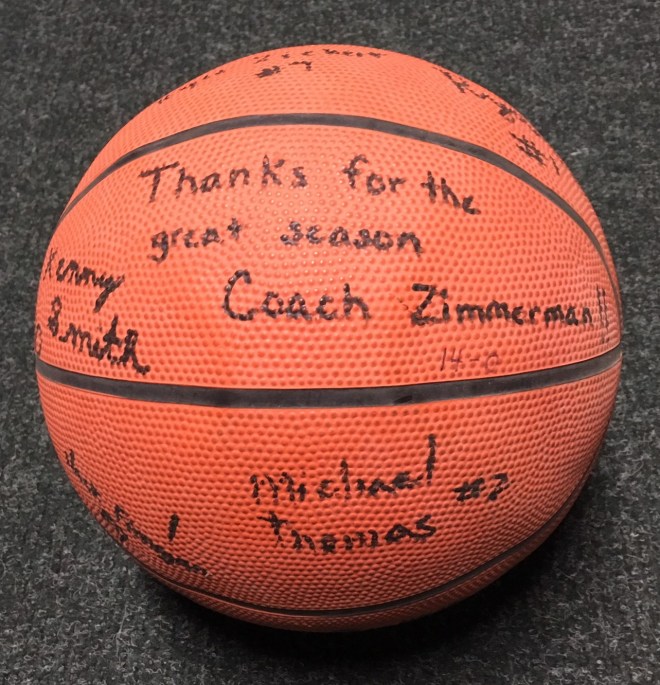 #4
Thanks for the
great season
Coach Zimmerman!!
Kenny
Smith
14-0
Michael
Thomas #2